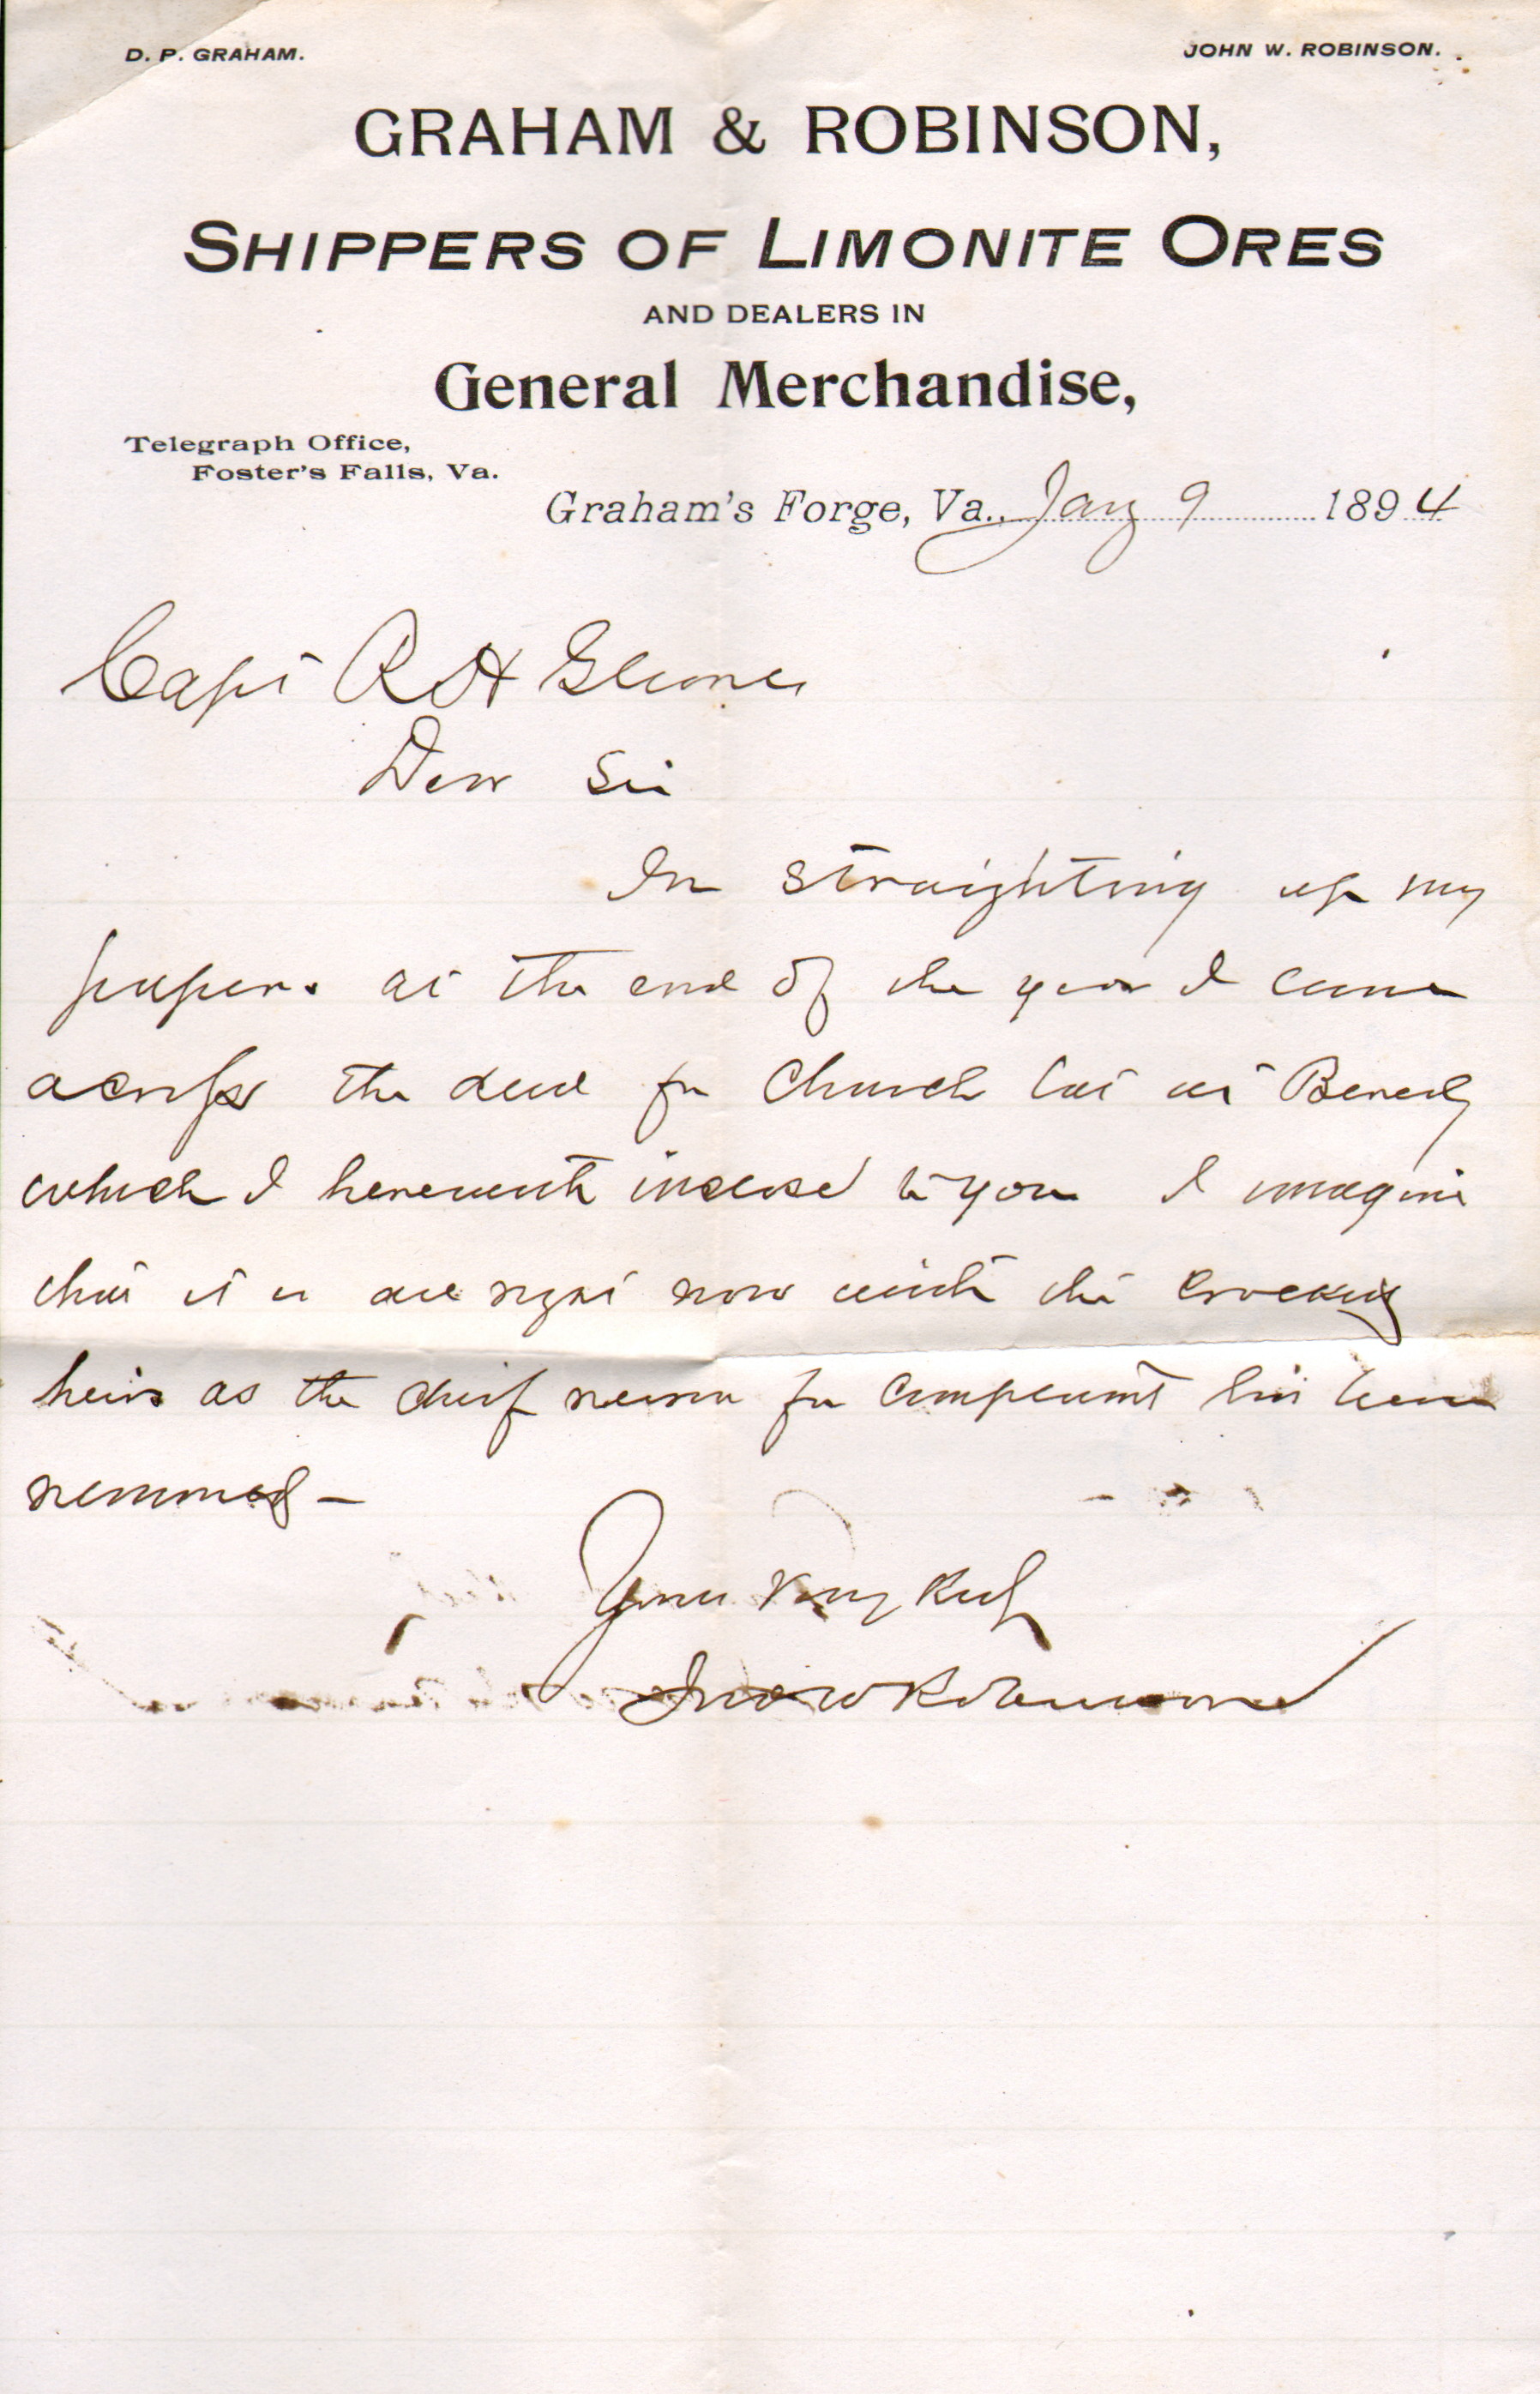 D. P. GRAHAM. JOHN W. ROBINSON.
GRAHAM & ROBINSON,
SHIPPERS OF LIMONITE ORES
AND DEALERS IN
General Merchandise,
Telegraph Office,
Foster's Falls, Va.
Graham's Forge, Va., Jany 9 1894
Capt R H
Dear Sir
In straighting up my
papers at the end of the year I came
across the deed for Church lot at
which I herewith inclose to you I imagine
that it is all right now with the Crockett
heirs as the chief reason for complaint has been
removed —
Yours Very Resly
Jno W Robinson